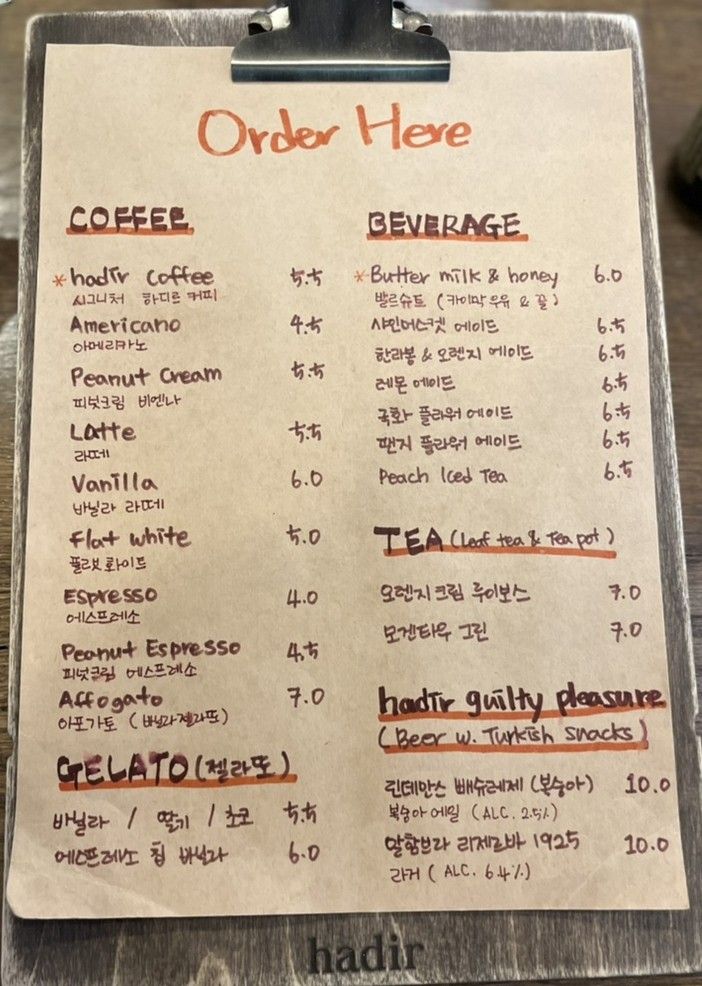 Order Here
COFFEE
*hadir coffee 5.5
시그니처 하디르 커피
Americano 4.5
아메리카노
Peanut Cream 5.5
피넛크림 비엔나
Latte 5.5
라떼
Vanilla 6.0
바닐라 라떼
Flat white 5.0
플랫 화이트
Espresso 4.0
에스프레소
Peanut Espresso 4.5
피넛크림 에스프레소
Affogato 7.0
아포가토 (바닐라젤라또)
GELATO (젤라또)
바닐라 / 딸기 / 초코 5.5
에스프레소 칩 바닐라 6.0
BEVERAGE
*Butter milk & honey 6.0
발르슈트 (카이막우유 & 꿀)
샤인머스켓 에이드 6.5
한라봉 & 오렌지 에이드 6.5
레몬 에이드 6.5
국화 플라워 에이드 6.5
팬지 플라워 에이드 6.5
Peach Iced Tea 6.5
TEA (Leaf tea & Tea pot)
오렌지크림 루이보스 7.0
모겐타우 그린 7.0
hadir guilty pleasure
(Beer w. Turkish snacks)
린데만스 빼슈레제 (복숭아) 10.0
복숭아에일 (ALC. 2.5%)
알함브라 리제르바 1925 10.0
라거 (ALC. 6.4%)
hadir